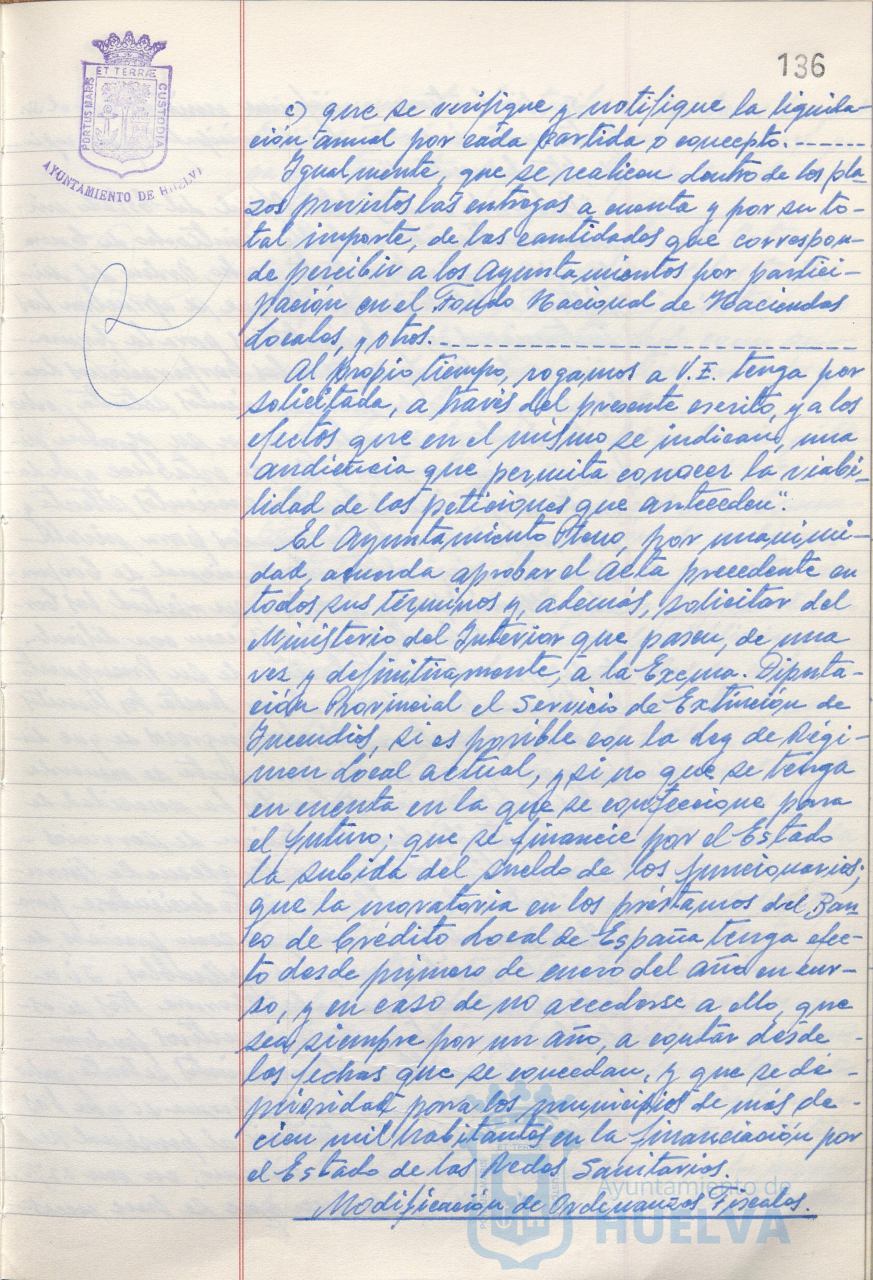 136
PORTUS MARIS
ET TERRÆ
CUSTODIA
AYUNTAMIENTO DE HUELVA
c) que se verifique y notifique la liquida-
ción anual por cada partida o concepto.------
Igualmente, que se realicen dentro de los pla-
zos previstos las entregas a cuenta y por su to-
tal importe, de las cantidades que correspon-
de percibir a los Ayuntamientos por partici-
pación en el Fondo Nacional de Haciendas
Locales, y otros.------------------------------
Al propio tiempo, rogamos a V.E. tenga por
solicitada, a través del presente escrito, y a los
efectos que en el mismo se indican, una
audiencia que permita conocer la viabi-
lidad de las peticiones que anteceden".
El Ayuntamiento Pleno, por unanimi-
dad, acuerda aprobar el Acta precedente en
todos sus términos y, además, solicitar del
Ministerio del Interior que pasen, de una
vez y definitivamente, a la Excma. Diputa-
ción Provincial el Servicio de Extinción de
Incendios, si es posible con la Ley de Régi-
men Local actual, y si no que se tenga
en cuenta en la que se confeccione para
el futuro; que se financie por el Estado
la subida del sueldo de los funcionarios;
que la moratoria en los préstamos del Ban-
co de Crédito Local de España tenga efec-
to desde primero de enero del año en cur-
so, y en caso de no accederse a ello, que
sea siempre por un año, a contar desde
las fechas que se concedan, y que se dé
prioridad para los municipios de más de
cien mil habitantes en la financiación por
el Estado de las Redes Sanitarias.
Modificación de Ordenanzas Fiscales.
Ayuntamiento de
HUELVA